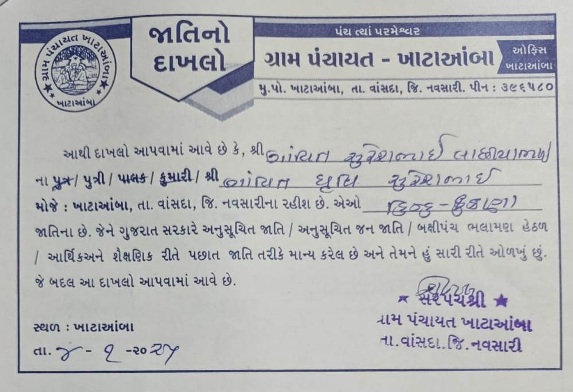 જાતિનો
દાખલો
પંચ ત્યાં પરમેશ્વર
ગ્રામ પંચાયત - ખાટાઆંબા
ઓફિસ
ખાટાઆંબા
મુ.પો. ખાટાઆંબા, તા. વાંસદા, જિ. નવસારી. પીન : ૩૯૬૫૮૦
ગ્રામ પંચાયત ખાટાઆંબા
ખાટાઆંબા
આથી દાખલો આપવામાં આવે છે કે, શ્રી ગાંવિત સુરેશભાઈ
ના પુત્ર / પુત્રી / પાલક / કુમારી / શ્રી ગાંવિત ધ્રુવિ સુરેશભાઈ
મોજે : ખાટાઆંબા, તા. વાંસદા, જિ. નવસારીના રહીશ છે. એઓ હિન્દુ - કુંકણા
જાતિના છે. જેને ગુજરાત સરકારે અનુસૂચિત જાતિ / અનુસૂચિત જન જાતિ / બક્ષીપંચ ભલામણ હેઠળ
/ આર્થિકઅને શૈક્ષણિક રીતે પછાત જાતિ તરીકે માન્ય કરેલ છે અને તેમને હું સારી રીતે ઓળખું છું.
જે બદલ આ દાખલો આપવામાં આવે છે.
સરપંચશ્રી
ગ્રામ પંચાયત ખાટાઆંબા
તા.વાંસદા.જિ.નવસારી
સ્થળ : ખાટાઆંબા
તા.